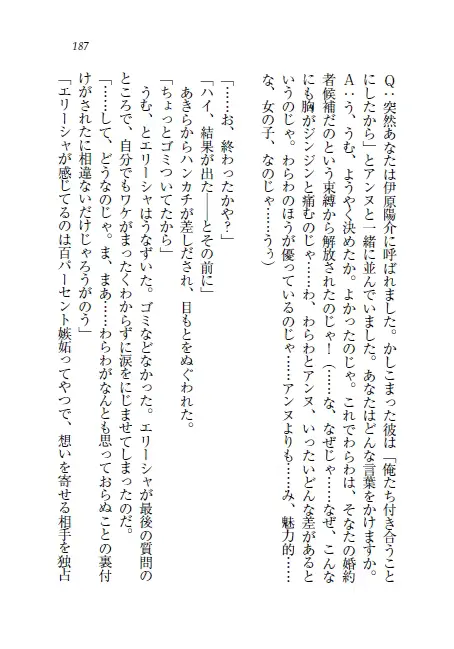 187
Q：突然あなたは伊原陽介に呼ばれました。かしこまった彼は「俺たち付き合うこと
にしたから」とアンヌと一緒に並んでいました。あなたはどんな言葉をかけますか。
A：う、うむ、ようやく決めたか。よかったのじゃ。これでわらわは、そなたの婚約
者候補だのという束縛から解放されたのじゃ！（……な、なぜじゃ……なぜ、こんな
にも胸がジンジンと痛むのじゃ……わ、わらわとアンヌ、いったいどんな差があると
いうのじゃ。わらわのほうが優っているのじゃ……アンヌよりも……み、魅力的……
な、女の子、なのじゃ……うぅ）
「……お、終わったかや？」
「ハイ、結果が出た――とその前に」
あきらからハンカチが差しだされ、目もとをぬぐわれた。
「ちょっとゴミついてたから」
うむ、とエリーシャはうなずいた。ゴミなどなかった。エリーシャが最後の質問の
ところで、自分でもワケがまったくわからずに涙をにじませてしまったのだ。
「……して、どうなのじゃ。ま、まあ……わらわがなんとも思っておらぬことの裏付
けがされたに相違ないだけじゃろうがのう」
「エリーシャが感じてるのは百パーセント嫉妬ってやつで、想いを寄せる相手を独占